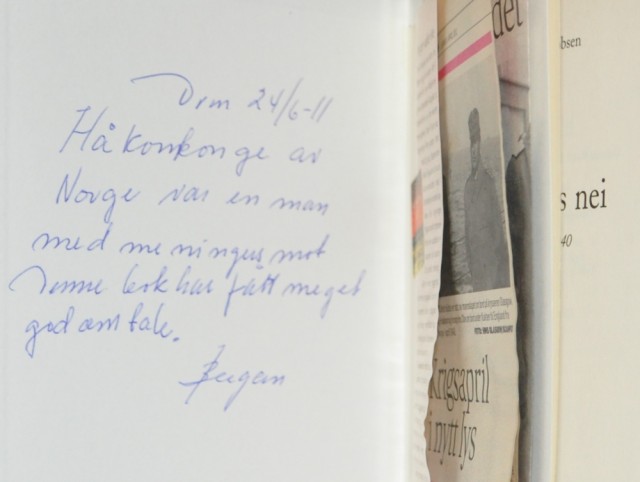 Drm 24/6-11
Håkon konge av
Norge var en man
med meningers mot
Denne bok har fått meget
god omtale.
det
Krigsapril
i nytt lys
obsen
s nei
40